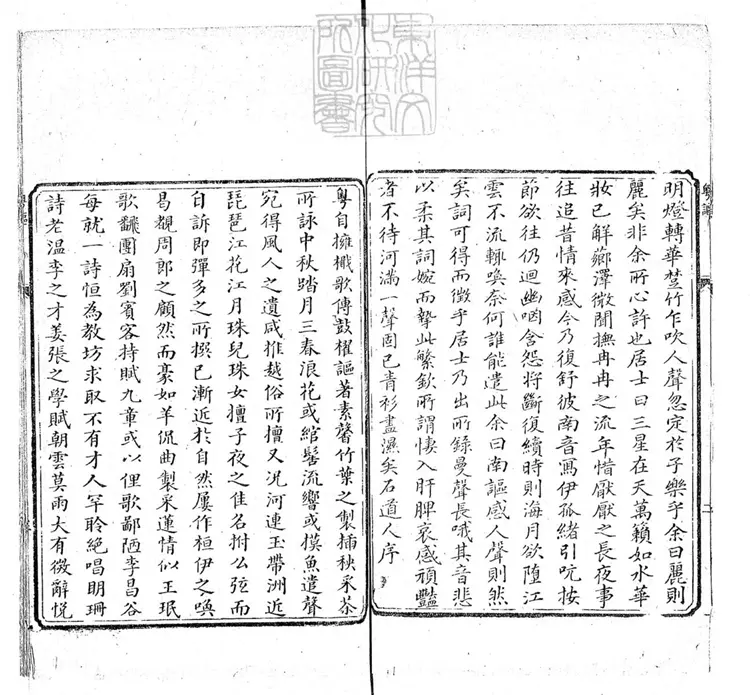 東洋文
化研究
所圖書
粵謳
明燈轉華筵竹乍吹人聲忽定於子樂乎余曰麗則
麗矣非余所心許也居士曰三星在天萬籟如水華
妝已解薌澤微聞撫冉冉之流年惜厭厭之長夜事
往追昔情來感今乃復舒彼南音寫伊孤緒引吭按
節欲往仍迴幽咽含怨將斷復續時則海月欲墮江
雲不流輒喚奈何誰能遣此余曰南謳感人聲則然
矣詞可得而徵乎居士乃出所錄曼聲長哦其音悲
以柔其詞婉而摯此繁欽所謂悽入肝脾哀感頑豔
者不待河滿一聲固已青衫盡濕矣石道人序
粵自擁檝歌傳鼓櫂謳著素馨竹葉之製插秧采茶
所詠中秋踏月三春浪花或綰髻流響或摸魚遣聲
宛得風人之遺咸推越俗所擅又況河連玉帶洲近
琵琶江花江月珠兒珠女擅子夜之佳名拊么弦而
自訴即彈多之所撰已漸近於自然屢作桓伊之喚
曷覯周郎之顧然而豪如羊侃曲製采蓮情似王珉
歌翻團扇劉賓客持賦九章或以俚歌鄙陋李昌谷
每就一詩恒為教坊求取不有才人罕聆絕唱明珊
詩老溫李之才姜張之學賦朝雲莫雨大有微辭悅